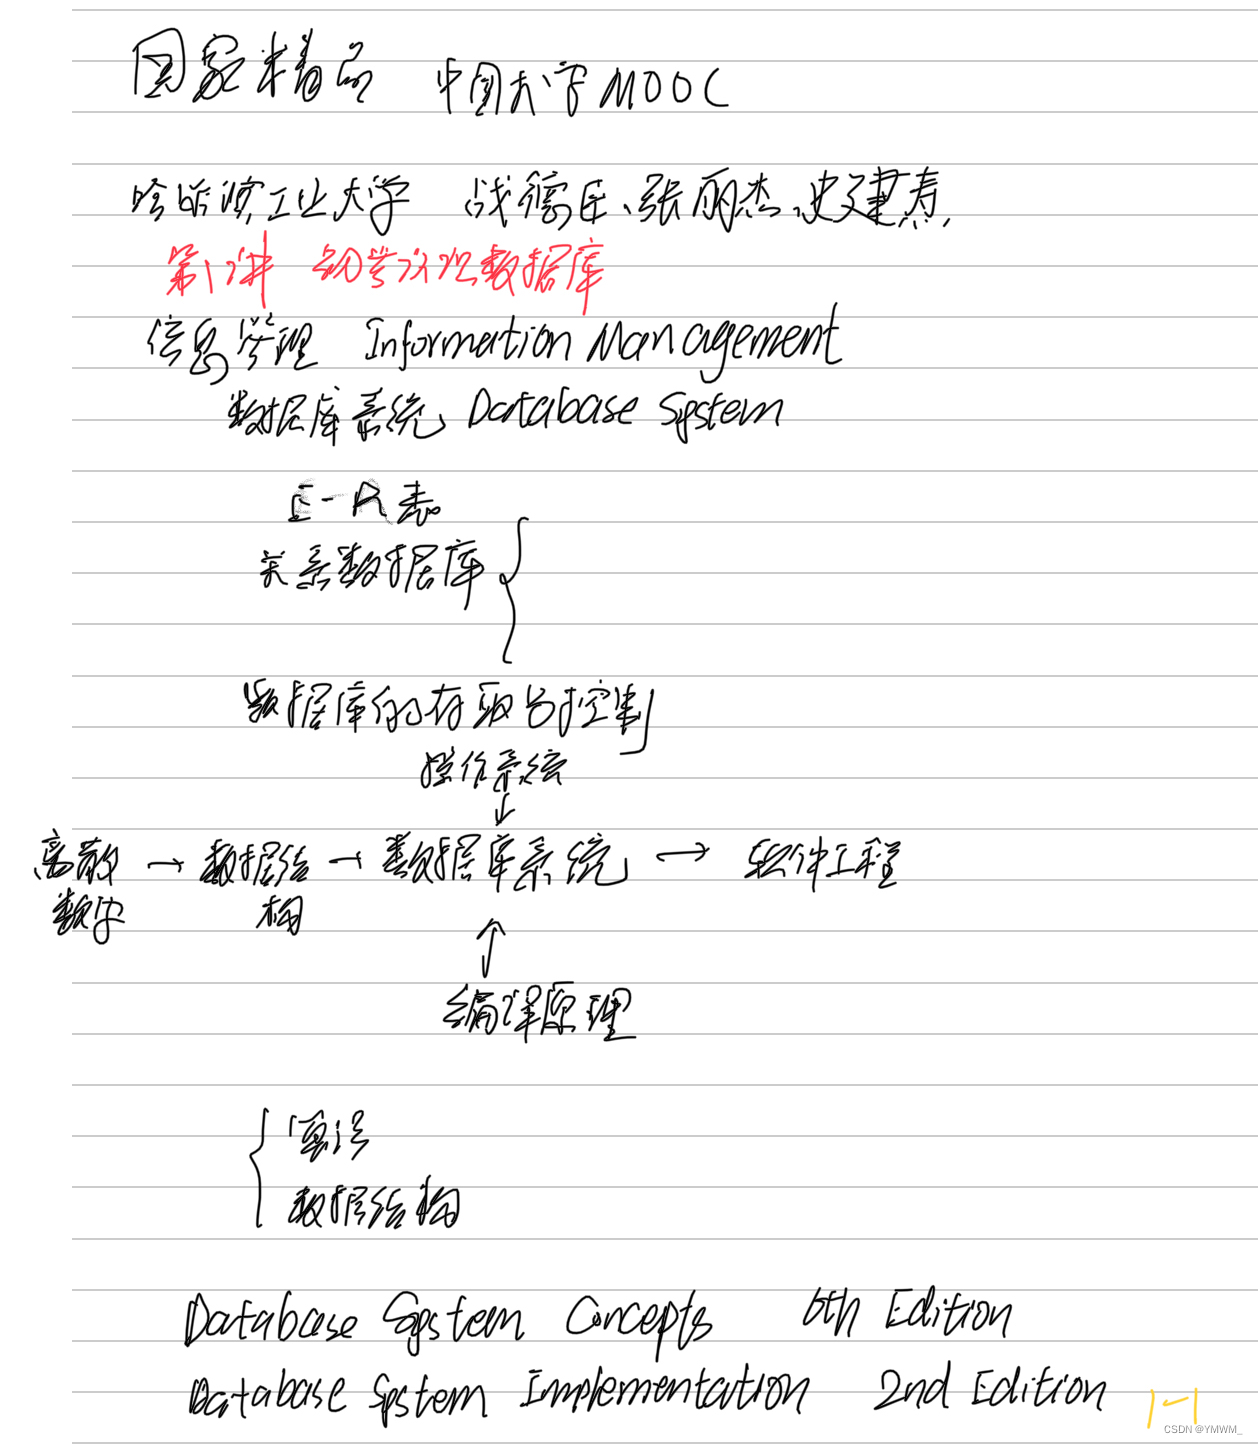 国家精品 中国大学MOOC
哈尔滨工业大学 战德臣、张丽杰、史建焘
第1讲 初步认识数据库
信息管理 Information Management
数据库系统 Database System
E-R表
关系数据库{
数据库的存取与控制
操作系统
↓
离散数学 → 数据结构 → 数据库系统 → 软件工程
↑
编译原理
{算法
数据结构
Database System Concepts 6th Edition
Database System Implementation 2nd Edition
1-1
CSDN @YMWM_